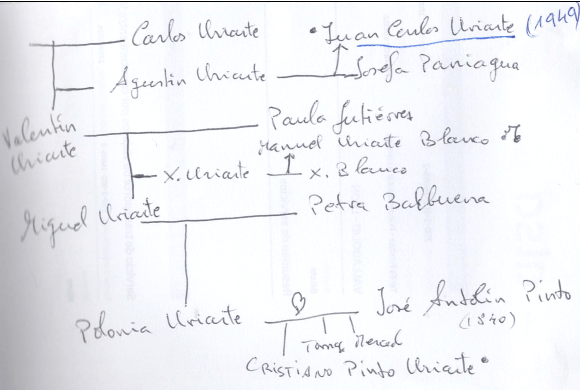 Carlos Uriarte • Juan Carlos Uriarte (1949)
Agustín Uriarte Josefa Paniagua
Valentín Uriarte Paula Gutiérres
Manuel Uriarte Blanco
X. Uriarte X. Blanco
Miguel Uriarte Petra Balbuena
Polonia Uriarte José Antolín Pinto
(1840)
Tomas Merced
CRISTIANO Pinto Uriarte •